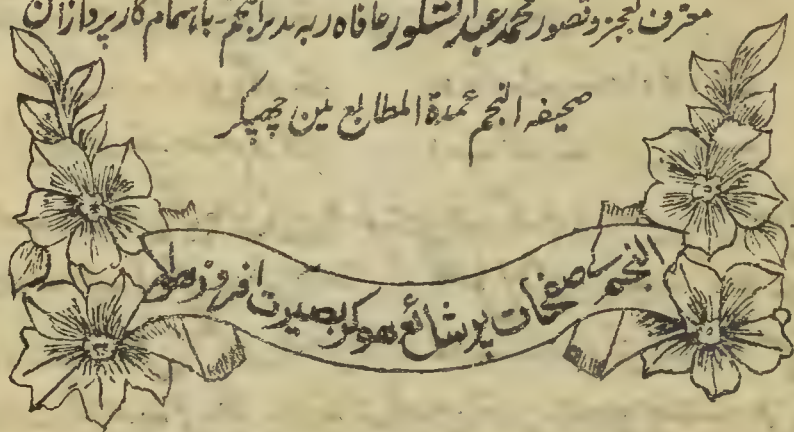 معترف بعجز و قصور محمد عبدالشکور عافاہ ربہ مدیر النجم۔ باہتمام کارپردازان
صحیفہ النجم عمدۃ المطابع مین چھپکر
النجم کے صفحات پر شائع ہوکر بصیرت افروز